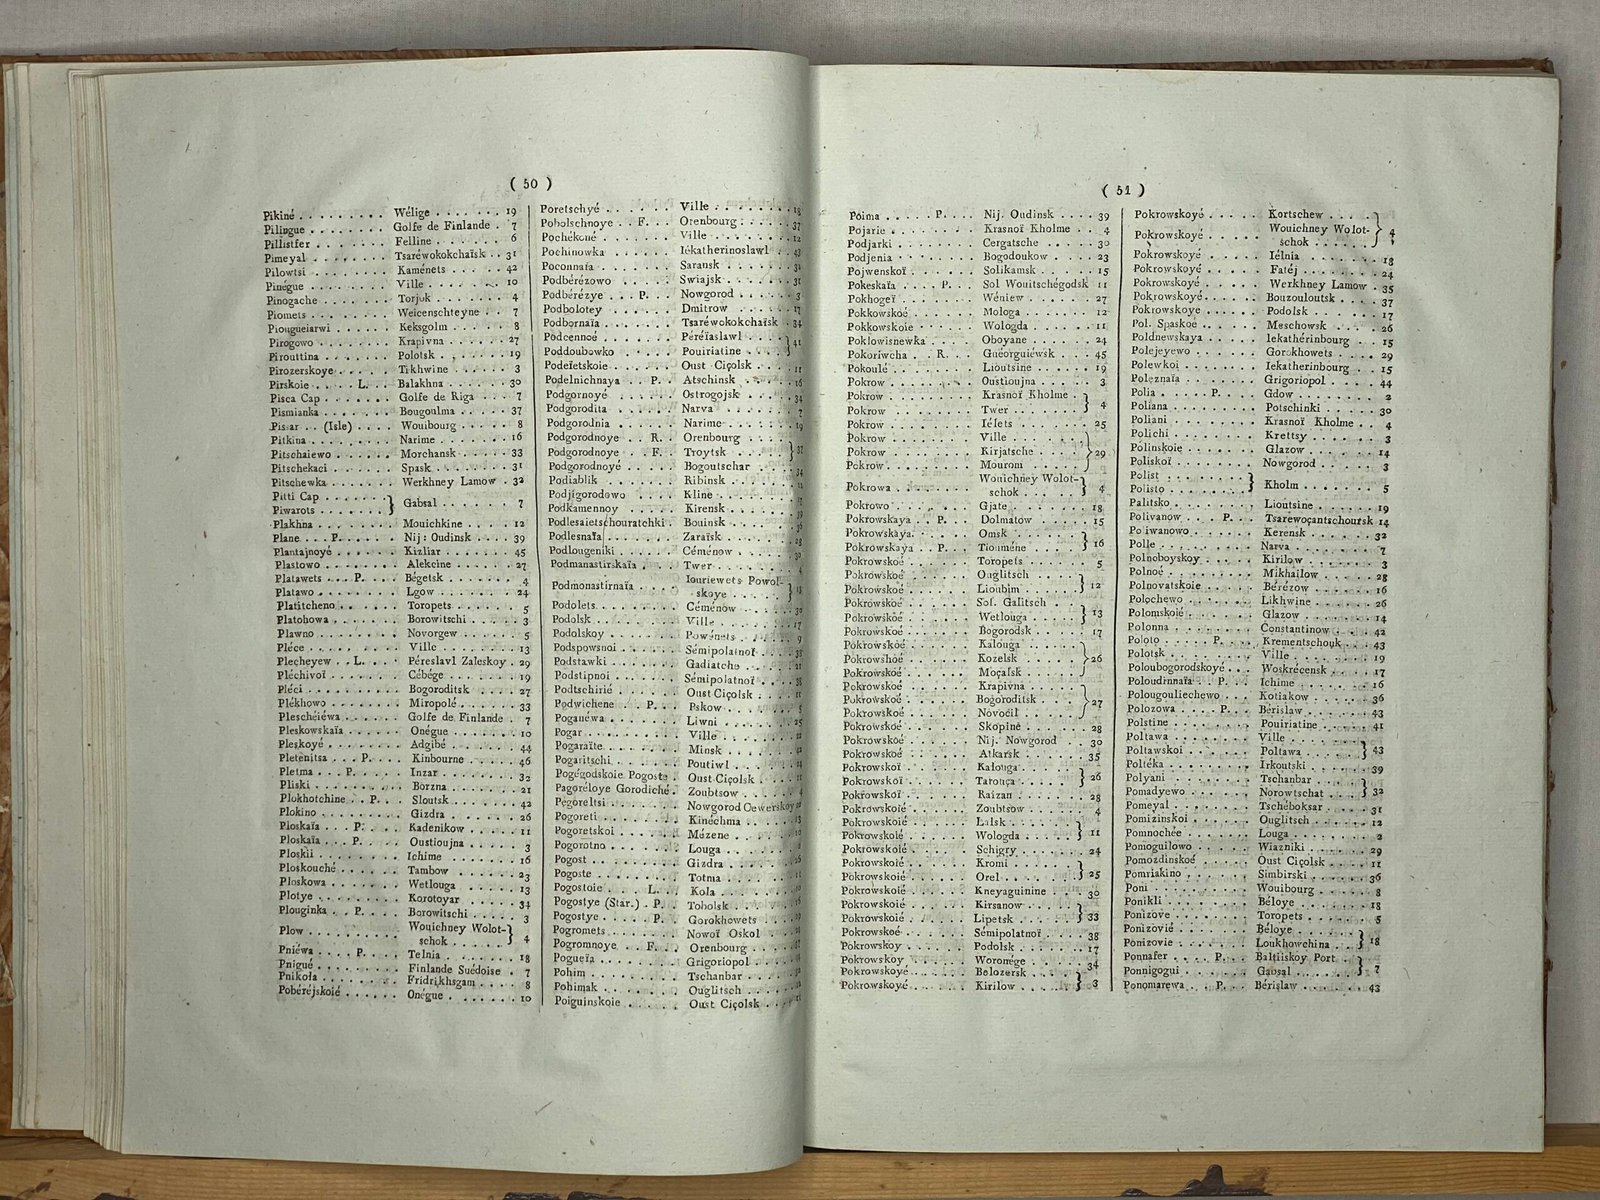 ( 50 )
Pikiné . . . . . . . . . Wélige . . . . . . . 19
Pilingue . . . . . . . . Golfe de Finlande . 7
Pillistfer . . . . . . . . Felline . . . . . . . 6
Pimeyal . . . . . . . . Tsaréwokokchaïsk . . 31
Pilowtsi . . . . . . . . Kaménets . . . . . . 42
Pinégue . . . . . . . . Ville . . . . . . . . 10
Pinogache . . . . . . . Torjok . . . . . . . 4
Piomets . . . . . . . . Weicenschteyne . . . 7
Piougueiarwi . . . . . . Keksgolm . . . . . . 8
Pirogowo . . . . . . . Krapivna . . . . . . 27
Pirouttina . . . . . . . Polotsk . . . . . . . 19
Pirozerskoye . . . . . . Tikhwine . . . . . . 3
Pirskoie . . . . L. . . . Balakhna . . . . . . 30
Pisca Cap . . . . . . . Golfe de Riga . . . . 7
Pismianka . . . . . . . Bougoulma . . . . . 37
Pissar . . (Isle) . . . . Wouibourg . . . . . 8
Pitkina . . . . . . . . Narime . . . . . . . 16
Pitschaiewo . . . . . . Morchansk . . . . . 33
Pitschekaci . . . . . . Spask . . . . . . . . 31
Pitschewka . . . . . . Werkhney Lamow . 32
Pitti Cap . . . . . . }
Piwarots . . . . . . } Gabsal . . . . . . . 7
Plakhna . . . . . . . . Mouichkine . . . . . 12
Plane . . . P. . . . . Nij: Oudinsk . . . . 39
Plantajnoyé . . . . . . Kizliar . . . . . . . 45
Plastowo . . . . . . . Alekcine . . . . . . 27
Platawets . . . P. . . . Bégetsk . . . . . . . 4
Platawo . . . . . . . . Lgow . . . . . . . . 24
Platitcheno . . . . . . Toropets . . . . . . 5
Platohowa . . . . . . . Borowitschi . . . . . 3
Plawno . . . . . . . . Novorgew . . . . . . 5
Pléce . . . . . . . . . Ville . . . . . . . . 13
Plecheyew . . L. . . . . Péreslavl Zaleskoy . 29
Pléchivoï . . . . . . . Cébége . . . . . . . 19
Pléci . . . . . . . . . Bogoroditsk . . . . . 27
Plékhowo . . . . . . . Miropolé . . . . . . 33
Pleschéiéwa . . . . . . Golfe de Finlande . 7
Pleskowskaïa . . . . . Onégue . . . . . . . 10
Pleskoyé . . . . . . . Adgibé . . . . . . . 44
Pletenitsa . . . P. . . . Kinbourne . . . . . 46
Pletma . . . P. . . . . Inzar . . . . . . . . 32
Pliski . . . . . . . . . Borzna . . . . . . . 21
Plokhotchine . . P. . . . Sloutsk . . . . . . . 42
Plokino . . . . . . . . Gizdra . . . . . . . 26
Ploskaïa . . . P. . . . . Kadenikow . . . . . 11
Ploskaïa . . . P. . . . . Oustioujna . . . . . 3
Ploskii . . . . . . . . Ichime . . . . . . . 16
Ploskouché . . . . . . Tambow . . . . . . 23
Ploskowa . . . . . . . Wetlouga . . . . . . 13
Plotye . . . . . . . . Korotoyar . . . . . . 34
Plouginka . . P. . . . . Borowitschi . . . . . 3
Plow . . . . . . . . . Wouichney Wolot-
schok . . . . . . } 4
Pniéwa . . . . P. . . . . Telnia . . . . . . . 18
Pnigué . . . . . . . . Finlande Suédoise . 7
Pnikoła . . . . . . . . Fridrikhsgam . . . . 8
Pobéréjskoié . . . . . . Onégue . . . . . . . 10
Poretschyé . . . . . . . Ville . . . . . . . . 18
Pobolschnoye . . F. . . . Orenbourg . . . . . 37
Pochékoné . . . . . . . Ville . . . . . . . . 12
Pochinowka . . . . . . Iékatherinoslawl . . 43
Poconnaïa . . . . . . . Saransk . . . . . . . 32
Podbérézowo . . . . . Swiajsk . . . . . . . 31
Podbérézye . . . P. . . . Nowgorod . . . . . 3
Podbolotey . . . . . . Dmitrow . . . . . . 17
Podbornaïa . . . . . . Tsaréwokokchaïsk . 34
Podcennoé . . . . . . Péréïaslawl . . . . } 41
Poddoubowko . . . . . Pouiriatine . . . . }
Podeïetskoie . . . . . . Oust Ciçolsk . . . . 11
Podelnichnaya . . P. . . Atschinsk . . . . . . 16
Podgornoyé . . . . . . Ostrogojsk . . . . . 34
Podgorodita . . . . . . Narva . . . . . . . . 7
Podgorodnia . . . . . . Narime . . . . . . . 19
Podgorodnoye . . R. . . Orenbourg . . . . }
Podgorodnoye . . F. . . Troytsk . . . . . } 37
Podgorodnoyé . . . . . Bogoutschar . . . . 34
Podiablik . . . . . . . Ribinsk . . . . . . . 12
Podjigorodowo . . . . Kline . . . . . . . .
Podkamennoy . . . . . Kirensk . . . . . . . 39
Podlesaietschouratchki . Bouinsk . . . . . . . 36
Podlesnaïa . . . . . . . Zaraïsk . . . . . . . 28
Podlougeniki . . . . . Céménow . . . . . . 30
Podmanastirskaïa . . . . Twer . . . . . . . . 4
Podmonastirnaïa . . . . Iouriewets Powol-
skoye . . . . . . } 13
Podolets . . . . . . . . Céménow . . . . . . 30
Podolsk . . . . . . . . Ville . . . . . . . . 17
Podolskoy . . . . . . . Powénets . . . . . . 9
Podspowsnoi . . . . . . Sémipolatnoï . . . . 38
Podstawki . . . . . . . Gadiatche . . . . . . 21
Podstipnoi . . . . . . . Sémipolatnoï . . . . 38
Podtschirié . . . . . . Oust Ciçolsk . . . . 11
Podwichene . . P. . . . Pskow . . . . . . . . 5
Poganéwa . . . . . . . Liwni . . . . . . . . 25
Pogar . . . . . . . . . Ville . . . . . . . . 22
Pogaraïte . . . . . . . Minsk . . . . . . . .
Pogaritschi . . . . . . Poutiwl . . . . . . . 24
Pogégodskoie Pogoste . Oust Ciçolsk . . . . 11
Pagoréloye Gorodiché . Zoubtsow . . . . . . 4
Pégoreltsi . . . . . . . Nowgorod Cewerskoy 22
Pogoreti . . . . . . . . Kinéchma . . . . . . 13
Pogoretskoi . . . . . . Mézene . . . . . . . 10
Pogorotno . . . . . . . Louga . . . . . . . . 2
Pogost . . . . . . . . Gizdra . . . . . . . 26
Pogoste . . . . . . . . Totma . . . . . . . .
Pogostoie . . . L. . . . Kola . . . . . . . . 10
Pogostye (Star.) . P. . . Tobolsk . . . . . . . 16
Pogostye . . . . P. . . . Gorokhowets . . . . 29
Pogromets . . . . . . . Nowoï Oskol . . . . 24
Pogromnoye . . F. . . . Orenbourg . . . . . 37
Pogueïa . . . . . . . . Grigoriopol . . . . .
Pohim . . . . . . . . . Tschanbar . . . . . .
Pohimak . . . . . . . . Ouglitsch . . . . . . 12
Poiguinskoie . . . . . . Oust Ciçolsk . . . . 11
( 51 )
Poima . . . . P. . . . . Nij. Oudinsk . . . . 39
Pojarie . . . . . . . . Krasnoï Kholme . . . 4
Podjarki . . . . . . . . Cergatsche . . . . . 30
Podjenia . . . . . . . . Bogodoukow . . . . 23
Pojwenskoï . . . . . . Solikamsk . . . . . . 15
Pokeskaïa . . . P. . . . Sol Wouitschégodsk 11
Pokhogeï . . . . . . . Wéniew . . . . . . . 27
Pokkowskoé . . . . . . Mologa . . . . . . . 12
Pokkowskoie . . . . . . Wologda . . . . . . 11
Poklowisnewka . . . . . Oboyane . . . . . . 24
Pokoriwcha . . R. . . . Guéorguiéwsk . . . 45
Pokoulé . . . . . . . . Lioutsine . . . . . . 19
Pokrow . . . . . . . . Oustioujna . . . . . 3
Pokrow . . . . . . . . Krasnoï Kholme }
Pokrow . . . . . . . . Twer . . . . . . . } 4
Pokrow . . . . . . . . Iélets . . . . . . . . 25
Pokrow . . . . . . . . Ville . . . . . . . }
Pokrow . . . . . . . . Kirjatsche . . . . } 29
Pokrow . . . . . . . . Mouromi . . . . . }
Pokrowa . . . . . . . . Wouichney Wolot-
schok . . . . . . } 4
Pokrowo . . . . . . . Gjate . . . . . . . . 18
Pokrowskaya . . P. . . . Dolmatow . . . . . . 15
Pokrowskaya . . . . . . Omsk . . . . . . . }
Pokrowskaya . . P. . . . Tiouméne . . . . } 16
Pokrowskoé . . . . . . Toropets . . . . . . 5
Pokrowskoé . . . . . . Ouglitsch . . . . }
Pokrowskoé . . . . . . Lioubim . . . . . } 12
Pokrowskoé . . . . . . Sol. Galitsch . . . }
Pokrowskoé . . . . . . Wetlouga . . . . } 13
Pokrowskoé . . . . . . Bogorodsk . . . . . 17
Pokrowskoé . . . . . . Kalouga . . . . . }
Pokrowshoé . . . . . . Kozelsk . . . . . } 26
Pokrowskoé . . . . . . Moçalsk . . . . . }
Pokrowskoé . . . . . . Krapivna . . . . }
Pokrowskoé . . . . . . Bogoroditsk . . . } 27
Pokrowskoé . . . . . . Novocil . . . . . }
Pokrowskoé . . . . . . Skopine . . . . . . . 28
Pokrowskoé . . . . . . Nij. Nowgorod . . . 30
Pokrowskoé . . . . . . Atkarsk . . . . . . . 35
Pokrowskoï . . . . . . Kalouga . . . . . }
Pokrowskoï . . . . . . Tarouça . . . . . } 26
Pokrowskoï . . . . . . Raizan . . . . . . . 28
Pokrowskoïé . . . . . . Zoubtsow . . . . . . 4
Pokrowskoié . . . . . . Lalsk . . . . . . . }
Pokrowskoié . . . . . . Wologda . . . . . } 11
Pokrowskoié . . . . . . Schigry . . . . . . . 24
Pokrowskoié . . . . . . Kromi . . . . . . }
Pokrowskoié . . . . . . Orel . . . . . . . } 25
Pokrowskoié . . . . . . Kneyaguinine . . . . 30
Pokrowskoié . . . . . . Kirsanow . . . . }
Pokrowskoié . . . . . . Lipetsk . . . . . } 33
Pokrowskoé . . . . . . Sémipolatnoï . . . . 38
Pokrowskoy . . . . . . Podolsk . . . . . . . 17
Pokrowskoy . . . . . . Woronége . . . . . . 34
Pokrowskoyé . . . . . . Belozersk . . . . }
Pokrowskoyé . . . . . . Kirilow . . . . . } 3
Pokrowskoyé . . . . . . Kortschew . . . . }
Pokrowskoyé . . . . . . Wouichney Wolot-
schok . . . . . . } 4
Pokrowskoyé . . . . . . Iélnia . . . . . . . . 18
Pokrowskoyé . . . . . . Fatéj . . . . . . . . 24
Pokrowskoyé . . . . . . Werkhney Lamow . 35
Pokrowskoyé . . . . . . Bouzouloutsk . . . . 37
Pokrowskoye . . . . . . Podolsk . . . . . . . 17
Pol. Spaskoé . . . . . . Meschowsk . . . . . 26
Poldnewskaya . . . . . Iekathérinbourg . . . 15
Polejeyewo . . . . . . Gorokhowets . . . . 29
Polewkoi . . . . . . . Iekatherinbourg . . . 15
Poleznaïa . . . . . . . Grigoriopol . . . . . 44
Polia . . . . . P. . . . Gdow . . . . . . . . 2
Poliana . . . . . . . . Potschinki . . . . . 30
Poliani . . . . . . . . Krasnoï Kholme . . . 4
Polichi . . . . . . . . Krettsy . . . . . . . 3
Polinskoie . . . . . . . Glazow . . . . . . . 14
Poliskoï . . . . . . . . Nowgorod . . . . . . 3
Polist . . . . . . . . }
Polisto . . . . . . . } Kholm . . . . . . . 5
Palitsko . . . . . . . . Lioutsine . . . . . . 19
Polivanow . . . P. . . . Tsarewoçantschoursk 14
Poliwanowo . . . . . . Kerensk . . . . . . . 32
Polle . . . . . . . . . Narva . . . . . . . . 7
Polnoboyskoy . . . . . Kirilow . . . . . . . 3
Polnoé . . . . . . . . Mikhaïlow . . . . . . 28
Polnovatskoie . . . . . Bérézow . . . . . . . 16
Polochewo . . . . . . . Likhwine . . . . . . 26
Polomskoié . . . . . . Glazow . . . . . . . 14
Polonna . . . . . . . . Constantinow . . . . 42
Poloto . . . . . P. . . . Krementschouk . . . 43
Polotsk . . . . . . . . Ville . . . . . . . . 19
Poloubogorodskoyé . . . Woskrécensk . . . . 17
Poloudinnaïa . . P. . . . Ichime . . . . . . . 16
Polougouliechewo . . . Kotiakow . . . . . . 36
Polozowa . . . . P. . . . Bérislaw . . . . . . . 43
Polstine . . . . . . . . Pouiriatine . . . . . 41
Poltawa . . . . . . . . Ville . . . . . . . }
Poltawskoi . . . . . . . Poltawa . . . . . } 43
Poltéka . . . . . . . . Irkoutski . . . . . . 39
Polyani . . . . . . . . Tschanbar . . . . }
Pomadyewo . . . . . . Norowtschat . . . } 32
Pomeyal . . . . . . . . Tschéboksar . . . . . 31
Pomizinskoi . . . . . . Ouglitsch . . . . . . 12
Pomnochée . . . . . . Louga . . . . . . . . 2
Pomoguilowo . . . . . Wiazniki . . . . . . 29
Pomozdinskoé . . . . . Oust Ciçolsk . . . . 11
Pomriakino . . . . . . Simbirski . . . . . . 36
Poni . . . . . . . . . Wouibourg . . . . . 8
Ponikli . . . . . . . . Béloye . . . . . . . 18
Ponizove . . . . . . . Toropets . . . . . . 5
Ponizovié . . . . . . . Béloye . . . . . . }
Ponizovie . . . . . . . Loukhowchina . . } 18
Ponnafer . . . . P. . . . Baltiiskoy Port . . }
Ponnigogui . . . . . . Gabsal . . . . . . } 7
Ponomarewa . . P. . . . Bérislaw . . . . . . 43